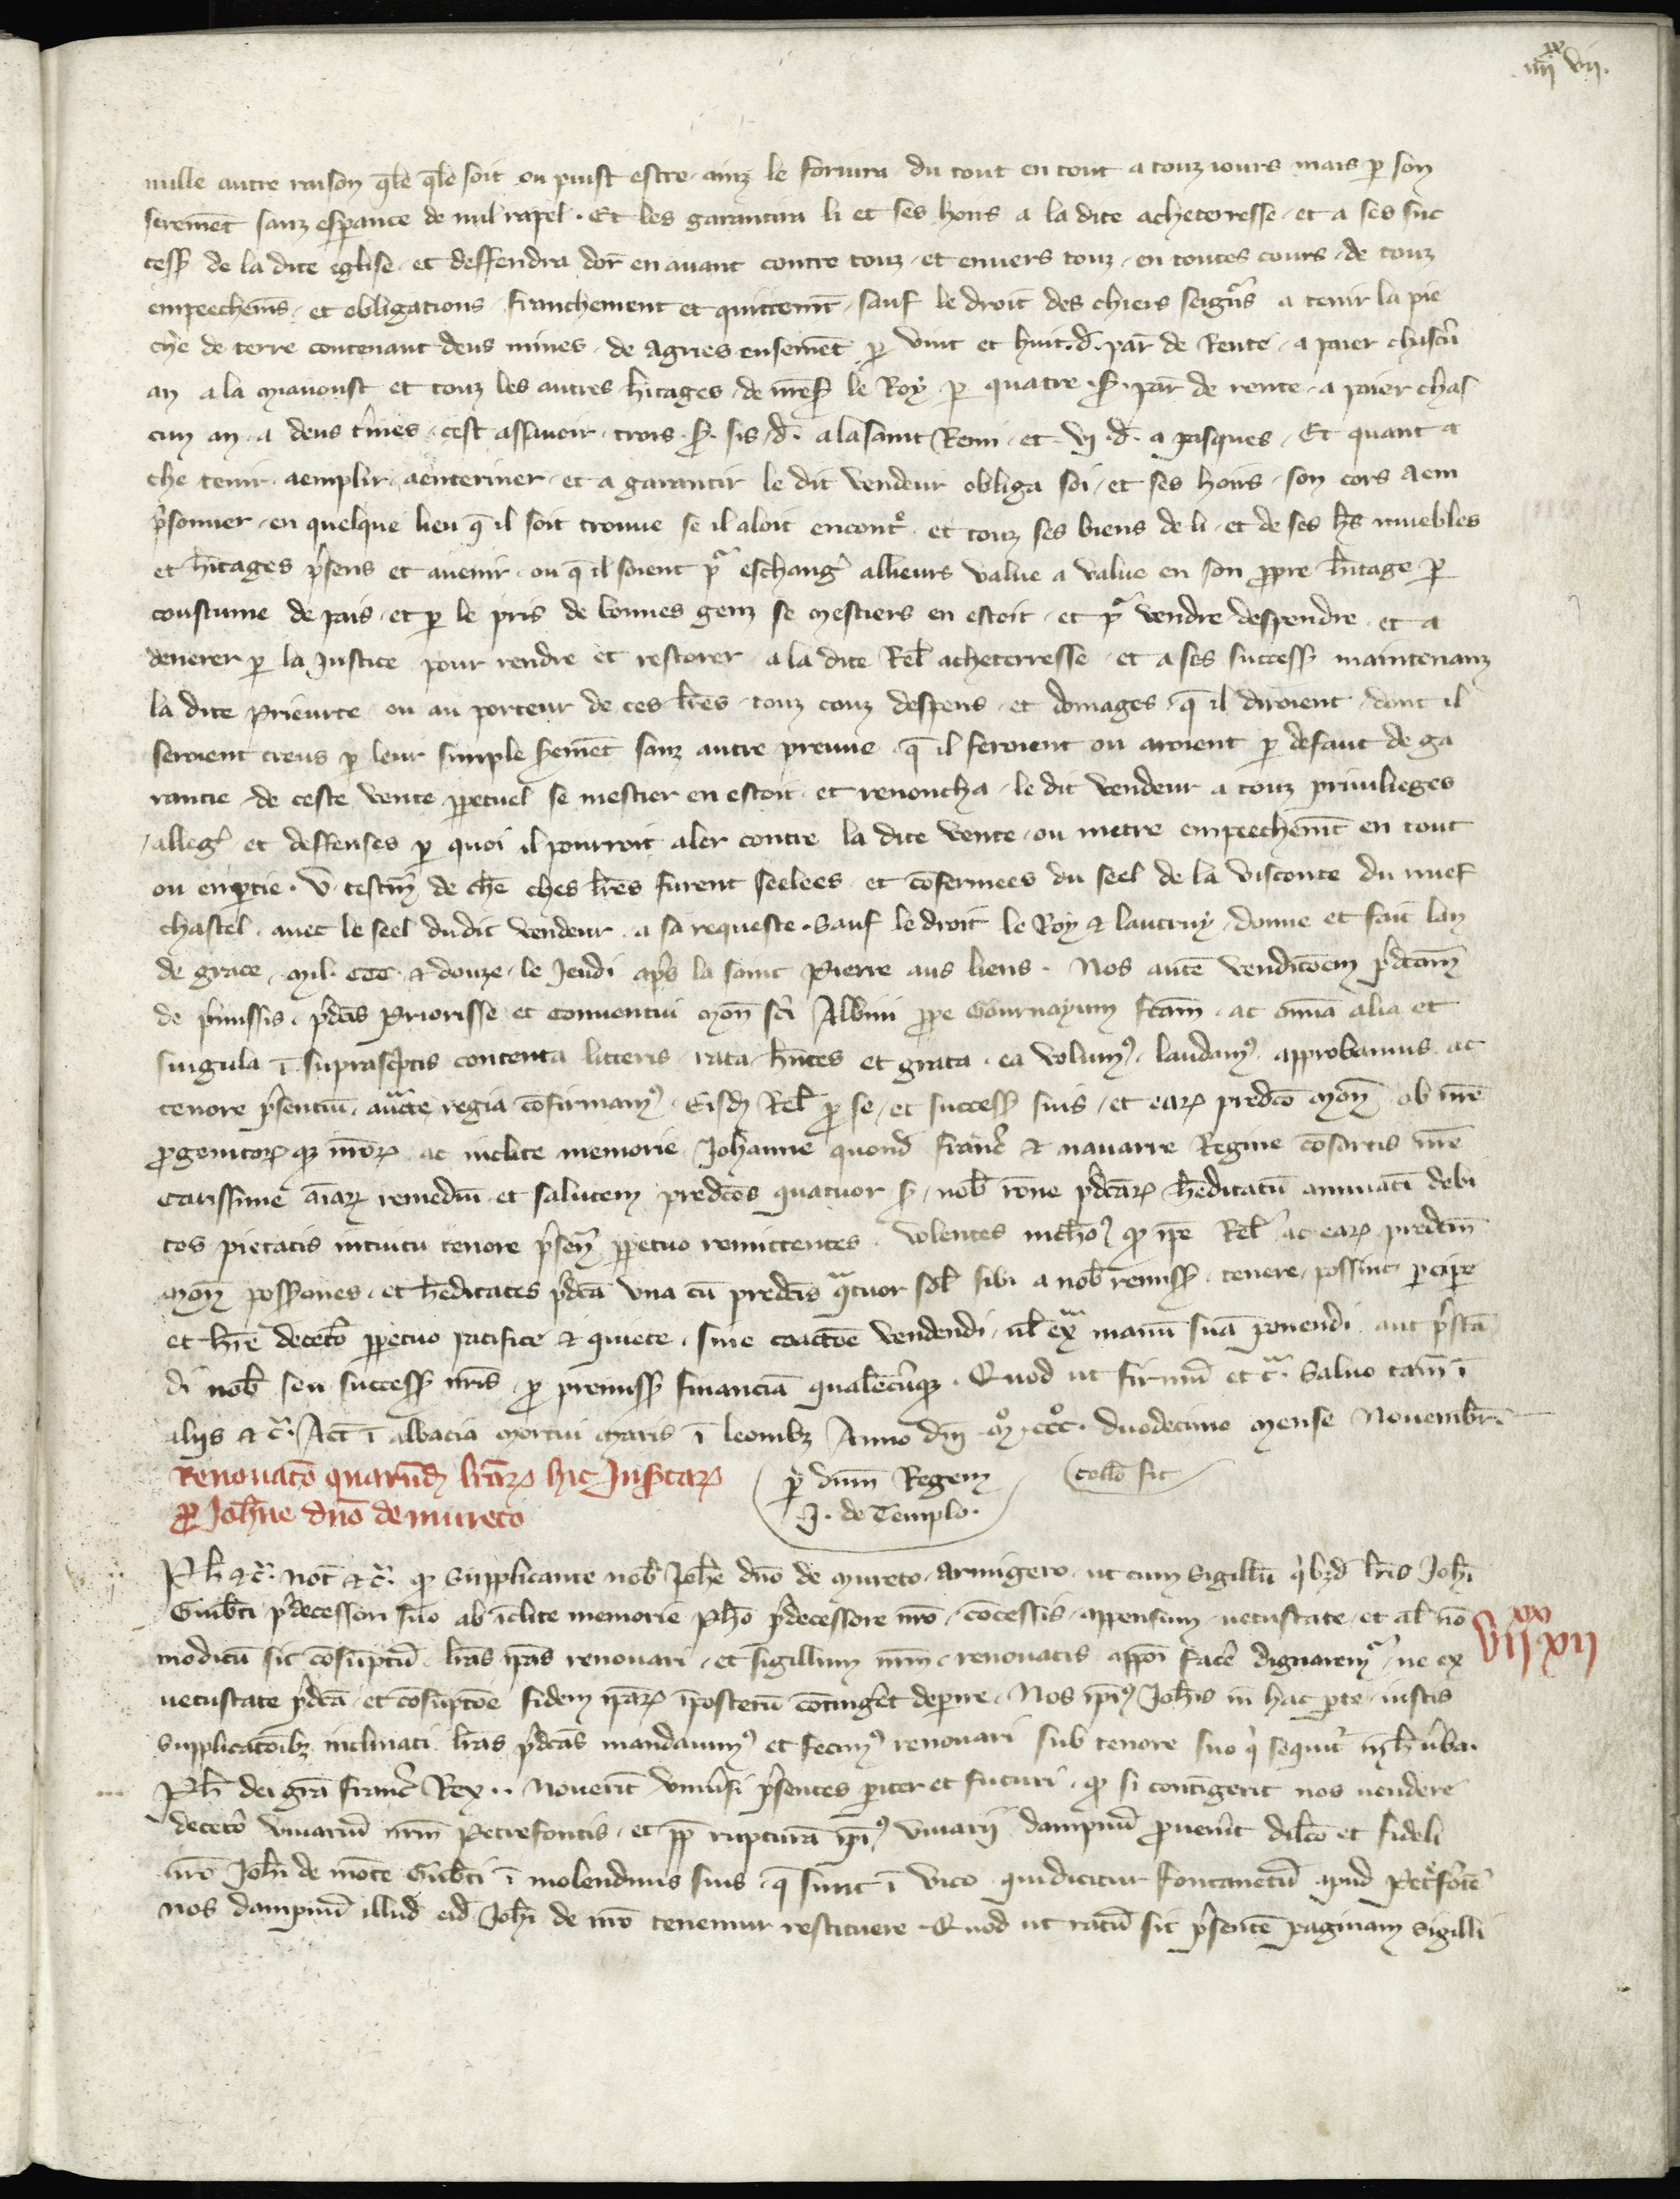 iiiixx vii.
nulle autre raison q̄le q̄le soit ou puist estre ainz le fornira du tout en tout a touz iours mais ꝑ son
serem̄et sanz esperance de nul rapel. Et les garantira li et ses hoirs a la dite acheterresse et a ses suc
cess̄ de la dite eglise et deffendra dor̄ en auant contre touz et enuers touz en toutes cours de touz
empeechem̄s et obligations franchement et quittem̄t sauf le droit des chiers seign̄rs a tenir la pie
che de terre contenant deus mines de agries ensem̄et ꝑ vint et huit .d̄. par̄ de Rente a paier chascū
an a la miaoust et touz les autres h̄itages de n̄re s̄ le Roy ꝑ quatre .s̄. par̄ de rente a paier chas
cun an a deus t̄mes cest assauoir trois .s̄. sis .d̄. a la saint Remi et vj .d̄. a pasques Et quant a
che tenir aemplir aenteriner et a garantir le dit vendeur obliga soi et ses hoirs son cors a em
p̄sonner en quelque lieu q̄ il soit trouue se il aloit encont̄ et touz ses biens de li et de ses h̄s muebles
et h̄itages p̄sens et auenir ou q̄ il soient pͣ eschanḡ ailleurs value a value en son ꝓpre h̄itage ꝑ
coustume de pais et ꝑ le pris de bonnes genz se mestiers en estoit et pͣ vendre despendre et a
denerer ꝑ la Justice pour rendre et restorer a la dite Rel̄ acheterresse et a ses success̄ maintenanz
la dite prieurte ou au porteur de ces l̄res touz couz despens et domages q̄ il diroient dont il
seroient creus ꝑ leur simple s̄em̄et sanz autre preuue q̄ il feroient ou aroient ꝑ defaut de ga
rantie de ceste vente ꝑpetuel se mestier en estoit et renoncha le dit vendeur a touz priuileges
alleḡ et deffenses ꝑ quoi il pourroit aler contre la dite vente ou metre empeechem̄t en tout
ou en ꝑtie. V̄ testm̄ de che ches l̄res furent seelees et cōfermees du seel de la visconte du nuef
chastel auec le seel dudit vendeur a sa requeste. Sauf le droit le Roy & lautruy donne et fait lan
de grace mil. ccc. & douze le Jeudi ap̄s la saint Pierre aus liens. Nos autē venditōem p̄dcām
de p̄missis p̄dcīs Priorisse et conuentui mon̄ sc̄i Albini ꝓpe Gournayum fcām ac om̄ia alia et
singula ī suprasc̄ptis contenta litteris rata h̄ntes et grata ea volumꝰ laudamꝰ approbamus ac
tenore p̄sentiū auctͣte regia cōfirmamꝰ Eisd̄ Rel̄ ꝓ se et success̄ suis et eaꝝ predc̄o mon̄ ob nr̄e
ꝓgenitoꝝ qꝫ nr̄oꝝ ac inclite memorie Johanne quond̄ franc̄ & nauarre Regine cōsortis nr̄e
carissime aīaꝝ remediū et salutem predc̄os quatuor s̄ nob̄ rōne p̄dcāꝝ h̄editatū annuatī debi
tos pietatis intuitu tenore p̄sen̄ ꝑpetuo remittentes. Volentes nich̄oꝰ qꝫ ip̄e Rel̄ ac eaꝝ predcm̄
mon̄ poss̄iones et h̄editates p̄dcā vna cū predcīs qͣtuor sol̄ sibi a nob̄ remiss̄ tenere possint ꝑcipe
et h̄re decet̄o ꝑpetuo pacifice & quiete sine coactōe vendendi ul̄ exͣ manū suā ponendi aut p̄stā
di nob̄ seu success̄ nr̄is ꝓ premiss̄ financiā qualēcūqꝫ. Quod ut firmū et c̄. Saluo tam̄ ī
aliis & c̄. Act̄ ī abbacia mortui maris ī leonibꝫ Anno dn̄i mͦ. cccͦ. duodecimo mense Nouembr̄.
Renouatō quarund̄ l̄raꝝ hic Insc̄taꝝ
ꝓ Joh̄ne dn̄o de mureto
ꝑ dn̄m Regem
J. de Templo.
Collō sit
Ph̄ & c̄. Not̄ & c̄. qꝫ supplicante nob̄ Joh̄e dn̄o de mureto armigero ut cum sigillū q̄bꝫd̄ l̄ris Joh̄i
Guib̄ti p̄decessori suo ab īclite memorie Ph̄o p̄decessore nr̄o cōcessis appensum uetustate et al̄ nō
modicū sit cōsūptū l̄ras ip̄as renouari et sigillum nr̄m renouatis appōi face dignaremͣ ne ex
uetustate p̄dcā et cōsūptōe fidem ip̄aꝝ īposterū cōtinḡet deꝑire. Nos ip̄iꝰ Joh̄is in hac ꝑte iustis
supplicatōibꝫ inclinati l̄ras p̄dcās mandauimꝰ et fecimꝰ renouari sub tenore suo q̄ sequit̄ in h̄ u̅ba.
Ph̄ dei grā franc̄ Rex.. Nouerit̄ vniūsi p̄sentes ꝑiter et futuri qꝫ si contigerit nos uendere
decet̄o viuariū nr̄m Petrefontis et ꝓp̄ rupturā ip̄iꝰ viuarij dampnū ꝓuen̄it dil̄co et fideli
nr̄o Joh̄i de mōte Guib̄ti ī molendinis suis q̄ sunt ī vico qui dicitur fontanetū apud Pet̄fōtē
nos dampnū illud eid̄ Joh̄i de mō tenemur restituere. Quod ut ratū sit p̄sentē paginam sigilli
viixx xii